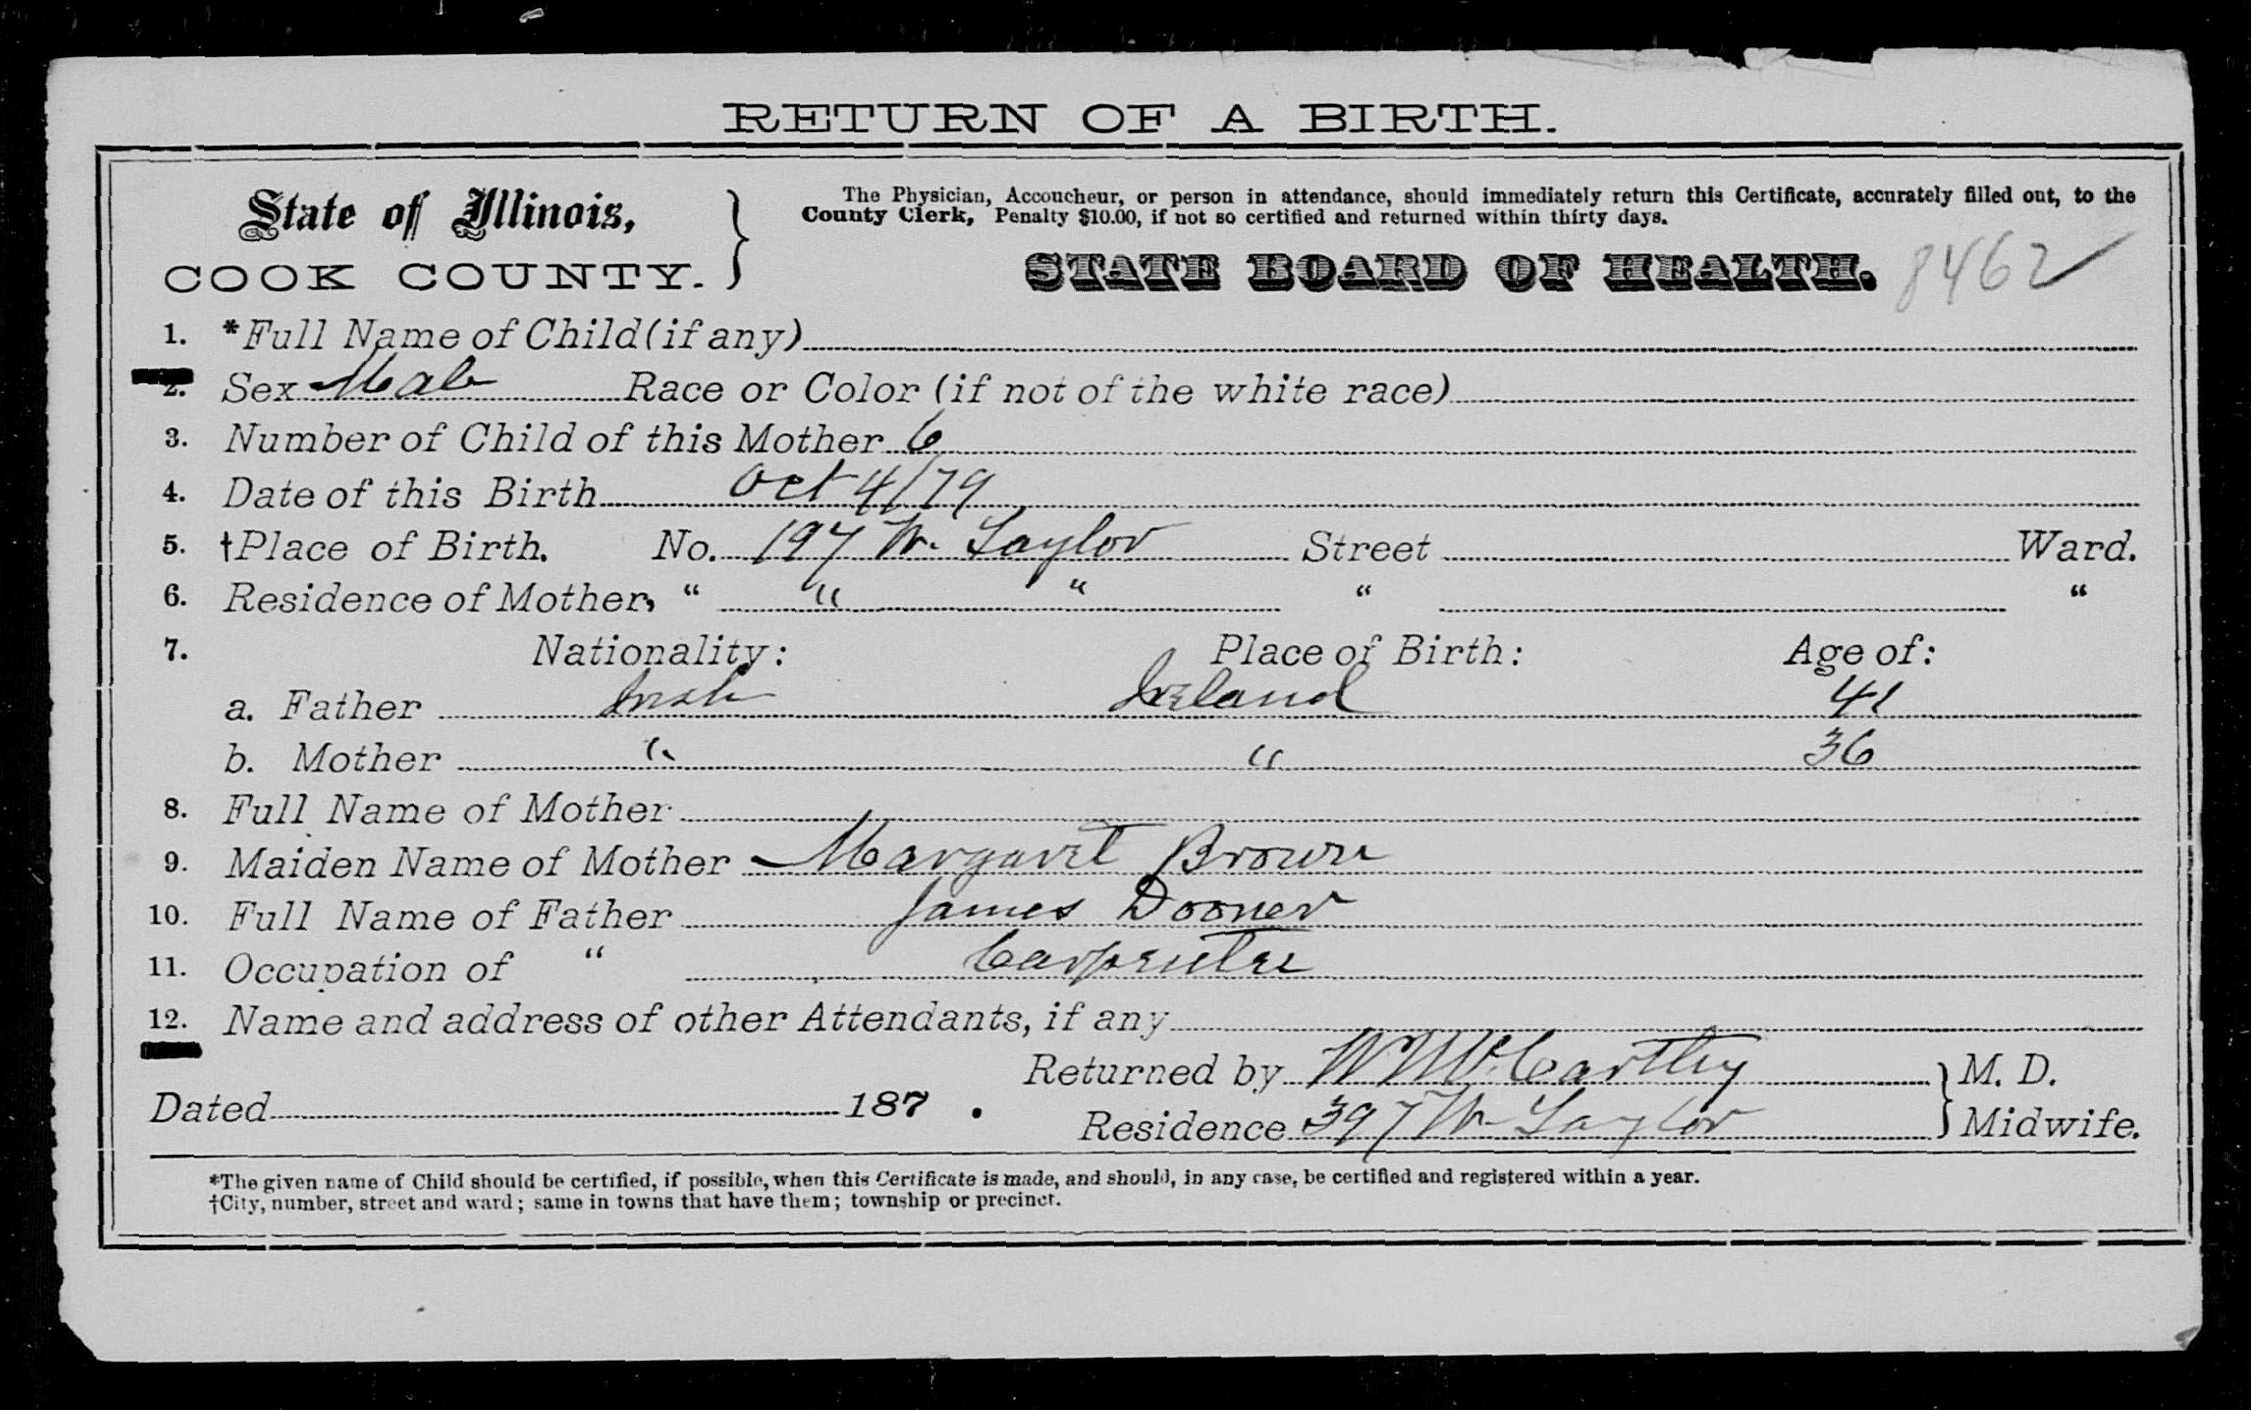 RETURN OF A BIRTH.
State of Illinois,
COOK COUNTY.
The Physician, Accoucheur, or person in attendance, should immediately return this Certificate, accurately filled out, to the
County Clerk, Penalty $10.00, if not so certified and returned within thirty days.
STATE BOARD OF HEALTH. 8462
1. *Full Name of Child (if any)
2. Sex Male Race or Color (if not of the white race)
3. Number of Child of this Mother 6
4. Date of this Birth Oct 4/79
5. †Place of Birth. No. 197 W. Taylor Street Ward.
6. Residence of Mother, " " " " "
7. Nationality: Place of Birth: Age of:
a. Father Irish Ireland 41
b. Mother " " 36
8. Full Name of Mother
9. Maiden Name of Mother Margaret Brown
10. Full Name of Father James Dooner
11. Occupation of " Carpenter
12. Name and address of other Attendants, if any
Returned by W McCarthy M. D.
Dated 187 .
Residence 397 W Taylor Midwife.
*The given name of Child should be certified, if possible, when this Certificate is made, and should, in any case, be certified and registered within a year.
†City, number, street and ward; same in towns that have them; township or precinct.